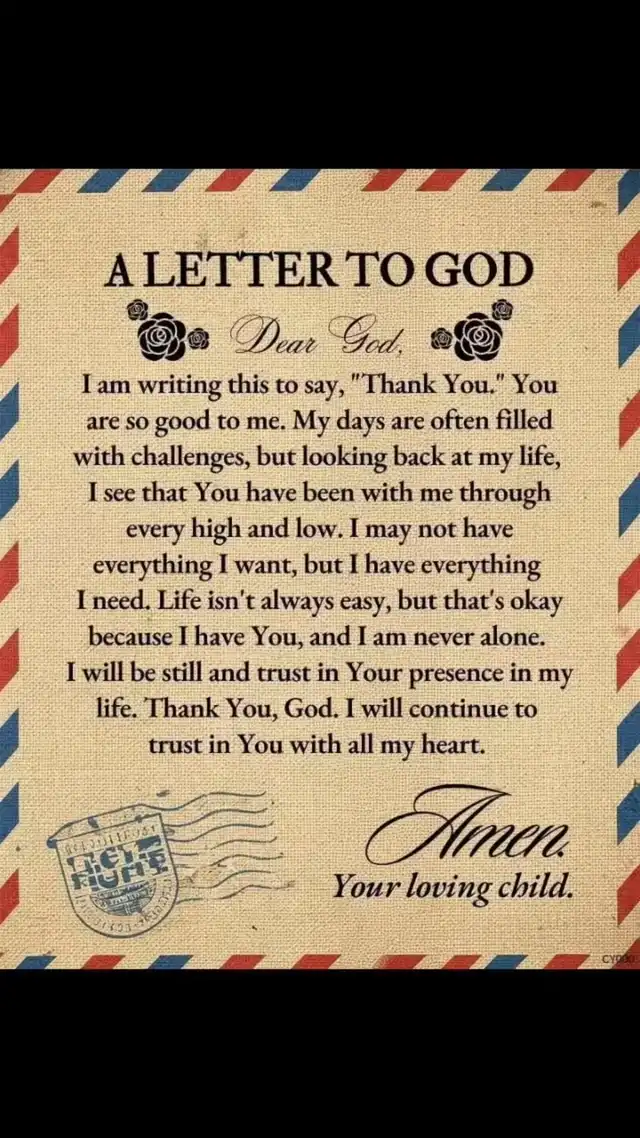 A LETTER TO GOD
Dear God,
I am writing this to say, "Thank You." You
are so good to me. My days are often filled
with challenges, but looking back at my life,
I see that You have been with me through
every high and low. I may not have
everything I want, but I have everything
I need. Life isn't always easy, but that's okay
because I have You, and I am never alone.
I will be still and trust in Your presence in my
life. Thank You, God. I will continue to
trust in You with all my heart.
Amen.
Your loving child.